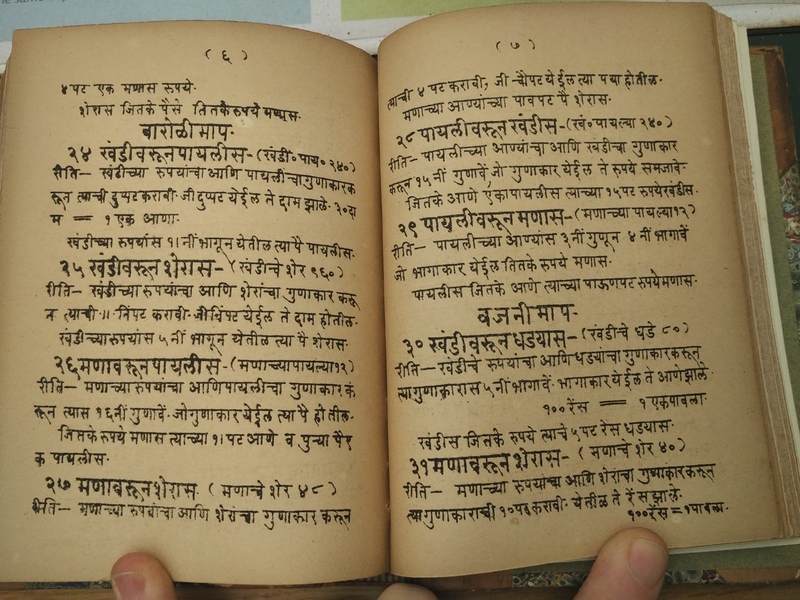 ( ६ )
४पट एक मणास रुपये.
शेरास जितके पैसे तितकेरुपये मणास.
बारोळी माप.
२४ खंडीवरून पायलीस-(खंडी॰पाय॰ २४०)
रीति— खंडीच्या रुपयांचा आणि पायलीचा गुणाकार क
रून त्याची दुप्पट करावी. जी दुप्पट येईल ते दाम झाले. ३०दा
म = १ एक आणा.
खंडीच्या रुपयांस १। नीं भागून येतील त्या पै पायलीस.
२५ खंडीवरून शेरास-(खंडीचे शेर ९६०)
रीति— खंडीच्या रुपयांचा आणि शेरांचा गुणाकार करू
न त्याची ॥ निंपट करावी. जी निंपट येईल ते दाम होतील.
खंडीच्या रुपयांस ५ नीं भागून येतील त्या पै शेरास.
२६ मणावरून पायलीस-(मणाच्या पायल्या १२)
रीति— मणाच्या रुपयांचा आणि पायलीचा गुणाकार क
रून त्यास १६ नीं गुणावें. जो गुणाकार येईल त्या पै होतील.
जितके रुपये मणास त्याच्या १। पट आणे व पुन्या पै ए
क पायलीस.
२७ मणावरून शेरास. ( मणाचे शेर ४८ )
रीति— मणाच्या रुपयांचा आणि शेरांचा गुणाकार करून
( ७ )
त्याची ४ पट करावी, जी चौपट येईल त्या पया होतील.
मणाच्या आण्यांच्या पावपट पै शेरास.
२८ पायलीवरून खंडीस-(खं॰पायल्या २४०)
रीति— पायलीच्या आण्यांचा आणि खंडीचा गुणाकार
करून १५ नीं गुणावें जो गुणाकार येईल ते रुपये समजावे.
जितके आणे एका पायलीस त्याच्या १५ पट रुपये खंडीस.
२९ पायलीवरून मणास-(मणाच्या पायल्या १२)
रीति— पायलीच्या आण्यांस ३ नीं गुणून ४ नीं भागावें
जो भागाकार येईल तितके रुपये मणास.
पायलीस जितके आणे त्याच्या पाऊणपट रुपये मणास.
वजनी माप.
३० खंडीवरून धडयास-(खंडीचे धडे ८०)
रीति— खंडीचे रुपयांचा आणि धडयांचा गुणाकार करून
त्या गुणाकारास ५ नीं भागावें. भागाकार येईल ते आणे झाले.
१०० रेंस = १ एक पावला.
खंडीस जितके रुपये त्याचे ५ पट रेंस धडयास.
३१ मणावरून शेरास-( मणाचे शेर ४०)
रीति— मणाच्या रुपयांचा आणि शेरांचा गुणाकार करून
त्या गुणाकाराची १० पट करावी. येतील ते रेंस झाले.
१०० रेंस = १ पावला.